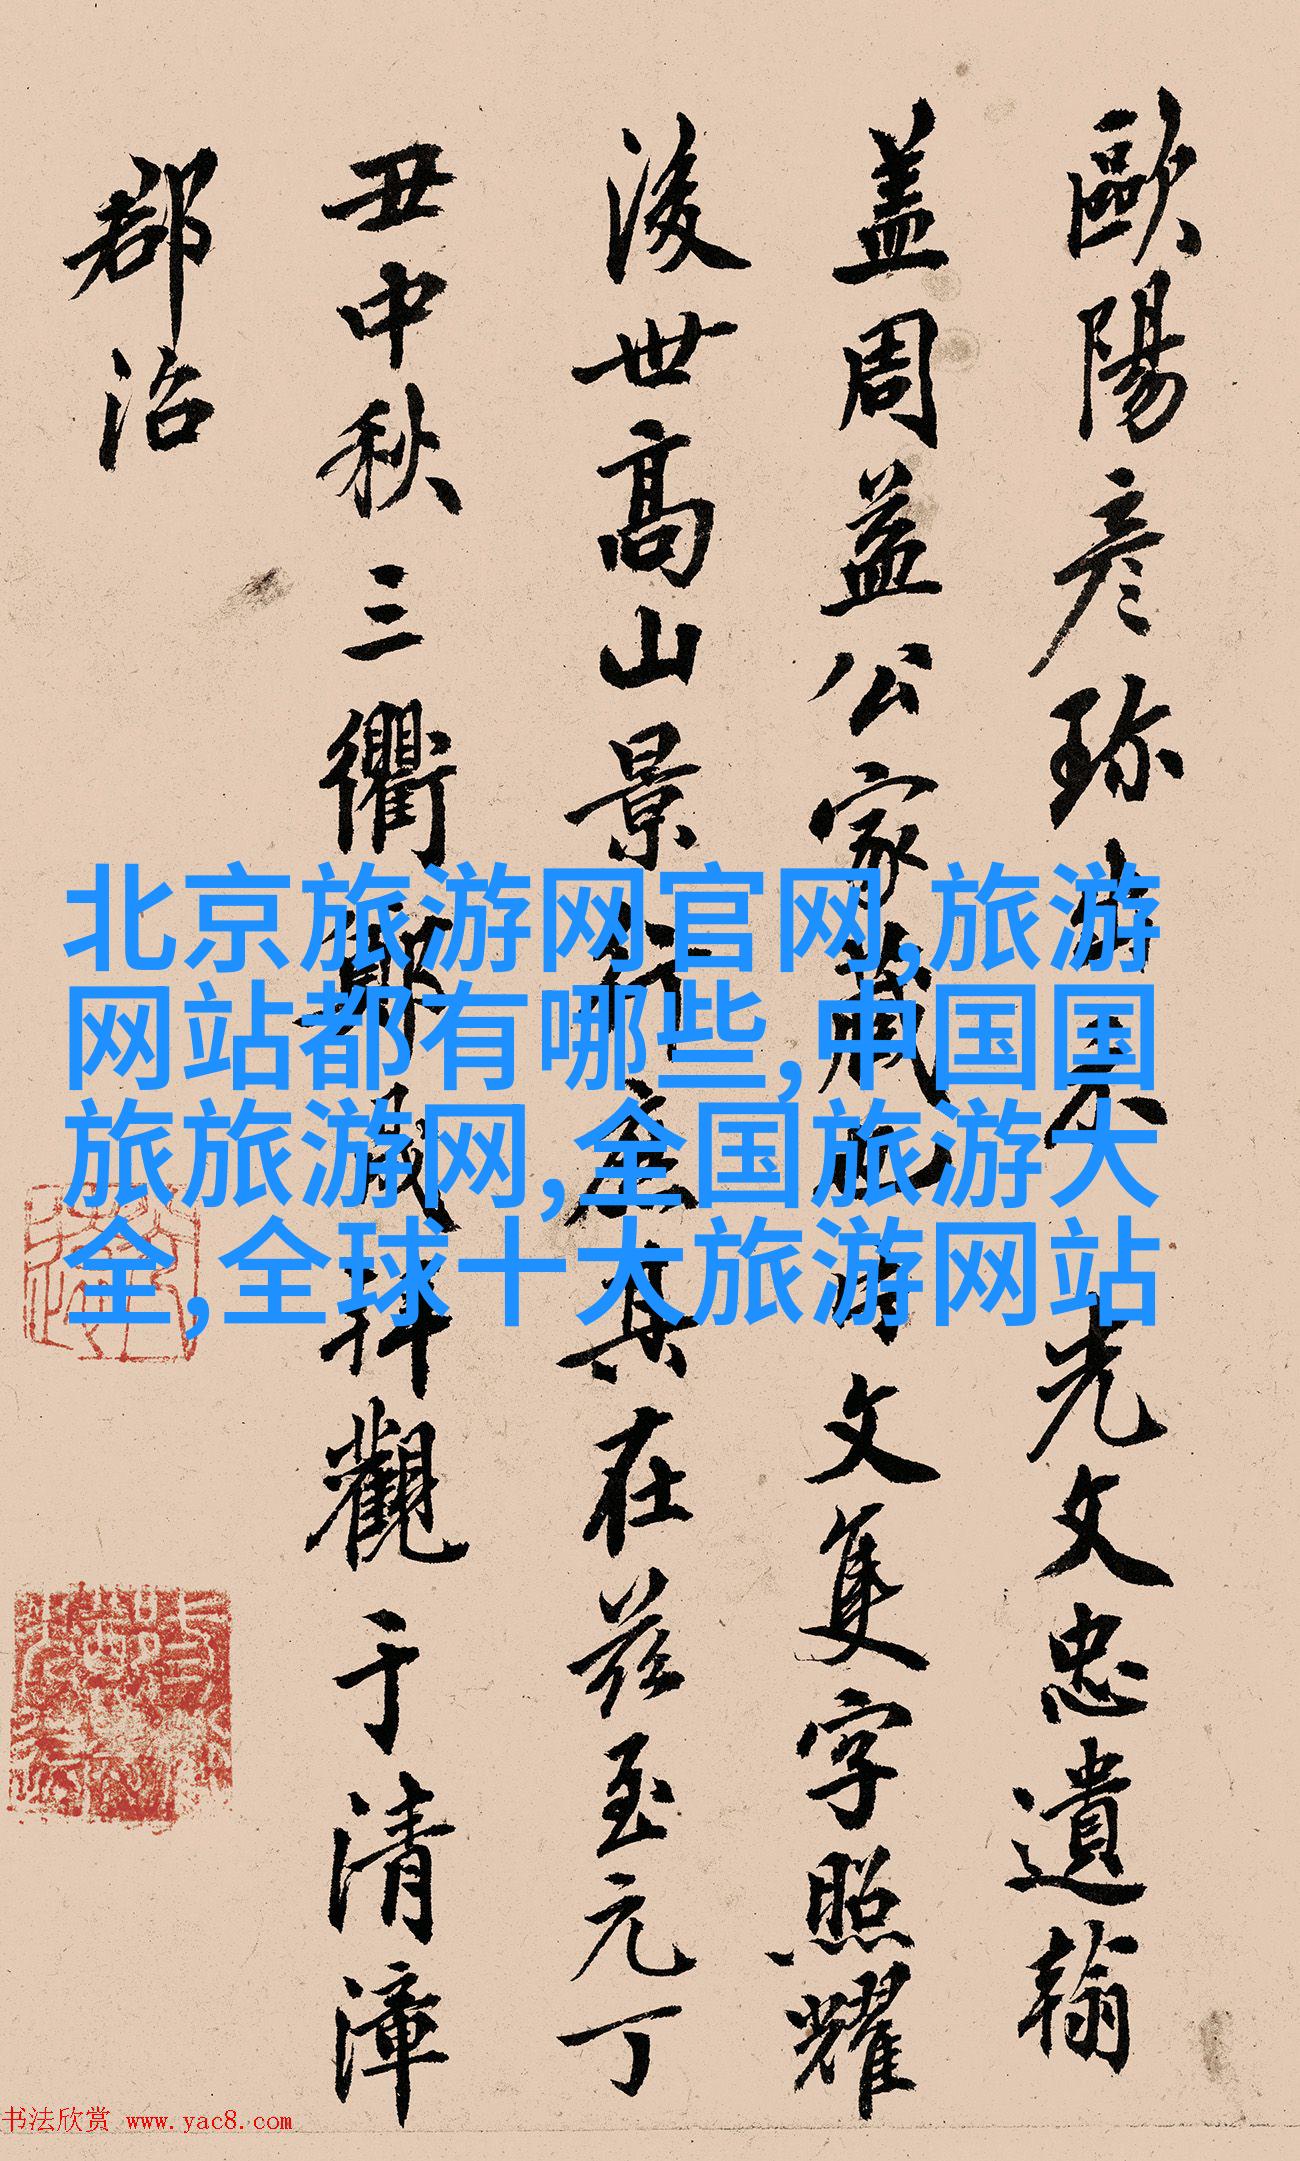 歐陽彦珎出示先文忠遺翰
盖周益公家藏也片文隻字照耀
後世高山景行其在兹至元丁
丑中秋三衢鄭拜觀于清漳
郡治
北京旅游网官网,旅游
网站都有哪些,中国国
旅旅游网,全国旅游大
全,全球十大旅游网站
书法欣赏 www.yac8.com